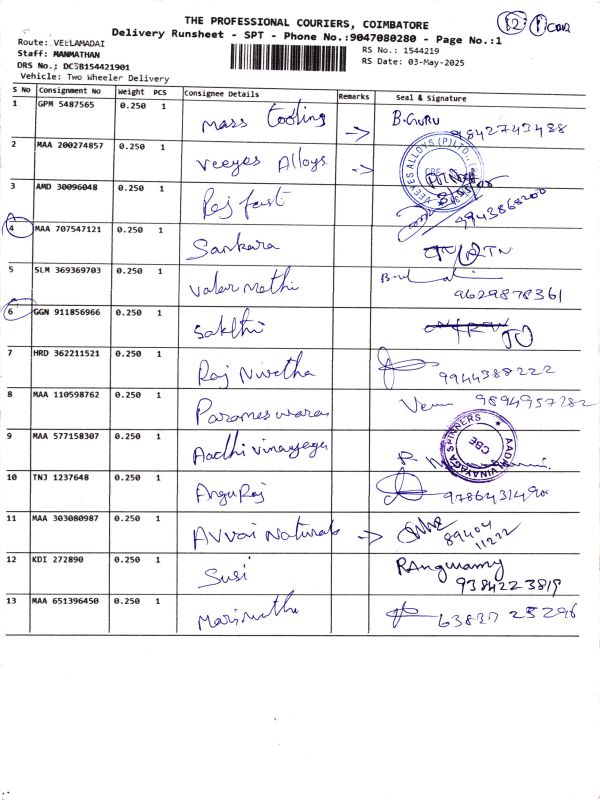 THE PROFESSIONAL COURIERS, COIMBATORE
Delivery Runsheet - SPT - Phone No.:9047080280 - Page No.:1
Route: VEELAMADAI
Staff: MANMATHAN
DRS No.: DCSB154421901
Vehicle: Two Wheeler Delivery
RS No.: 1544219
RS Date: 03-May-2025
12 1
S No Consignment No Weight PCS Consignee Details Remarks Seal & Signature
1 GPM 5487565 0.250 1 Mass Tooling -> B.GURU 9842743488
2 MAA 200274857 0.250 1 Veeyes Alloys -> VEEYES ALLOYS (P) LTD. CBE
3 AMD 30096048 0.250 1 Raj fast 9943868200
4 MAA 707547121 0.250 1 Sankara RTN
5 SLM 369369703 0.250 1 Valar mathi 9629878361
6 GGN 911856966 0.250 1 Sakthi TO
7 HRD 362211521 0.250 1 Raj Nivetha 9944388222
8 MAA 110598762 0.250 1 Parameswaran 9894957282
9 MAA 577158307 0.250 1 Aadhi vinayaga AADHI VINAYAGA SPINNERS CBE
10 TNJ 1237648 0.250 1 AnguRaj
11 MAA 303080987 0.250 1 Avvai Naturals -> 89404 11222
12 KDI 272890 0.250 1 Susi RAnguwamy 9384223819
13 MAA 651396450 0.250 1 Marimuthu 63837 25296